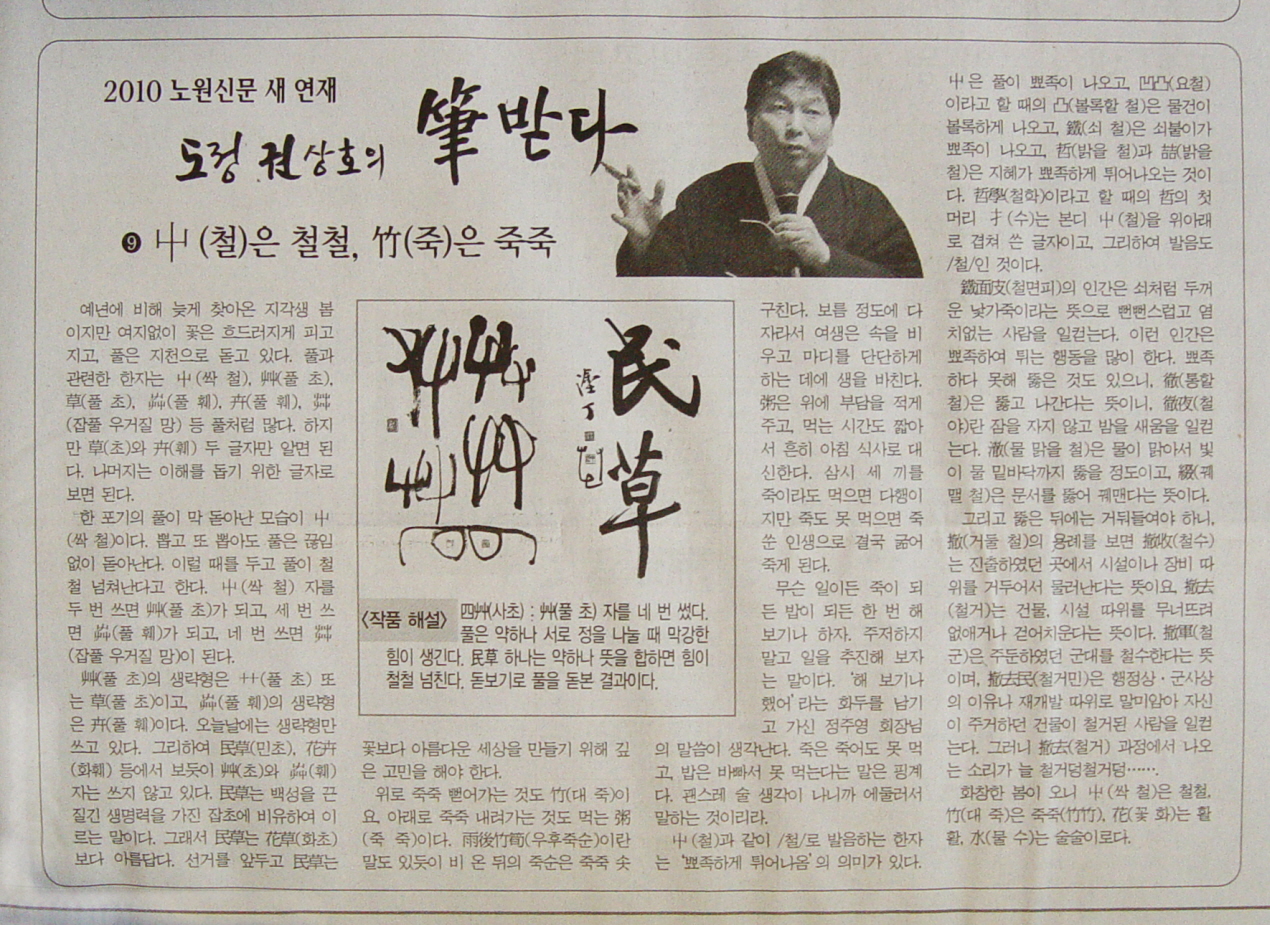 2010 노원신문 새 연재
도정 권상호의 筆받다
❾ 屮(철)은 철철, 竹(죽)은 죽죽
예년에 비해 늦게 찾아온 지각생 봄
이지만 여지없이 꽃은 흐드러지게 피고
지고, 풀은 지천으로 돋고 있다. 풀과
관련한 한자는 屮(싹 철), 艸(풀 초),
草(풀 초), 芔(풀 훼), 卉(풀 훼), 茻
(잡풀 우거질 망) 등 풀처럼 많다. 하지
만 草(초)와 卉(훼) 두 글자만 알면 된
다. 나머지는 이해를 돕기 위한 글자로
보면 된다.
한 포기의 풀이 막 돋아난 모습이 屮
(싹 철)이다. 뽑고 또 뽑아도 풀은 끊임
없이 돋아난다. 이럴 때를 두고 풀이 철
철 넘쳐난다고 한다. 屮(싹 철) 자를
두 번 쓰면 艸(풀 초)가 되고, 세 번 쓰
면 芔(풀 훼)가 되고, 네 번 쓰면 茻
(잡풀 우거질 망)이 된다.
艸(풀 초)의 생략형은 艹(풀 초) 또
는 草(풀 초)이고, 芔(풀 훼)의 생략형
은 卉(풀 훼)이다. 오늘날에는 생략형만
쓰고 있다. 그리하여 民草(민초), 花卉
(화훼) 등에서 보듯이 艸(초)와 芔(훼)
자는 쓰지 않고 있다. 民草는 백성을 끈
질긴 생명력을 가진 잡초에 비유하여 이
르는 말이다. 그래서 民草는 花草(화초)
보다 아름답다. 선거를 앞두고 民草는
民草
<작품 해설> 四艸(사초) : 艸(풀 초) 자를 네 번 썼다.
풀은 약하나 서로 정을 나눌 때 막강한
힘이 생긴다. 民草 하나는 약하나 뜻을 합하면 힘이
철철 넘친다. 돋보기로 풀을 돋본 결과이다.
꽃보다 아름다운 세상을 만들기 위해 깊
은 고민을 해야 한다.
위로 죽죽 뻗어가는 것도 竹(대 죽)이
요, 아래로 죽죽 내려가는 것도 먹는 粥
(죽 죽)이다. 雨後竹筍(우후죽순)이란
말도 있듯이 비 온 뒤의 죽순은 죽죽 솟
구친다. 보름 정도에 다
자라서 여생은 속을 비
우고 마디를 단단하게
하는 데에 생을 바친다.
粥은 위에 부담을 적게
주고, 먹는 시간도 짧아
서 흔히 아침 식사로 대
신한다. 삼시 세 끼를
죽이라도 먹으면 다행이
지만 죽도 못 먹으면 죽
쑨 인생으로 결국 굶어
죽게 된다.
무슨 일이든 죽이 되
든 밥이 되든 한 번 해
보기나 하자. 주저하지
말고 일을 추진해 보자
는 말이다. ‘해 보기나
했어’라는 화두를 남기
고 가신 정주영 회장님
의 말씀이 생각난다. 죽은 죽어도 못 먹
고, 밥은 바빠서 못 먹는다는 말은 핑계
다. 괜스레 술 생각이 나니까 에둘러서
말하는 것이리라.
屮(철)과 같이 /철/로 발음하는 한자
는 ‘뾰족하게 튀어나옴’의 의미가 있다.
屮은 풀이 뾰족이 나오고, 凹凸(요철)
이라고 할 때의 凸(볼록할 철)은 물건이
볼록하게 나오고, 鐵(쇠 철)은 쇠붙이가
뾰족이 나오고, 哲(밝을 철)과 喆(밝을
철)은 지혜가 뾰족하게 튀어나오는 것이
다. 哲學(철학)이라고 할 때의 哲의 첫
머리 扌(수)는 본디 屮(철)을 위아래
로 겹쳐 쓴 글자이고, 그리하여 발음도
/철/인 것이다.
鐵面皮(철면피)의 인간은 쇠처럼 두꺼
운 낯가죽이라는 뜻으로 뻔뻔스럽고 염
치없는 사람을 일컫는다. 이런 인간은
뾰족하여 튀는 행동을 많이 한다. 뾰족
하다 못해 뚫은 것도 있으니, 徹(통할
철)은 뚫고 나간다는 뜻이니, 徹夜(철
야)란 잠을 자지 않고 밤을 새움을 일컫
는다. 澈(물 맑을 철)은 물이 맑아서 빛
이 물 밑바닥까지 뚫을 정도이고, 綴(꿰
맬 철)은 문서를 뚫어 꿰맨다는 뜻이다.
그리고 뚫은 뒤에는 거둬들여야 하니,
撤(거둘 철)의 용례를 보면 撤收(철수)
는 진출하였던 곳에서 시설이나 장비 따
위를 거두어서 물러난다는 뜻이요, 撤去
(철거)는 건물, 시설 따위를 무너뜨려
없애거나 걷어치운다는 뜻이다. 撤軍(철
군)은 주둔하였던 군대를 철수한다는 뜻
이며, 撤去民(철거민)은 행정상·군사상
의 이유나 재개발 따위로 말미암아 자신
이 주거하던 건물이 철거된 사람을 일컫
는다. 그러니 撤去(철거) 과정에서 나오
는 소리가 늘 철거덩철거덩…….
화창한 봄이 오니 屮(싹 철)은 철철,
竹(대 죽)은 죽죽(竹竹), 花(꽃 화)는 활
활, 水(물 수)는 술술이로다.